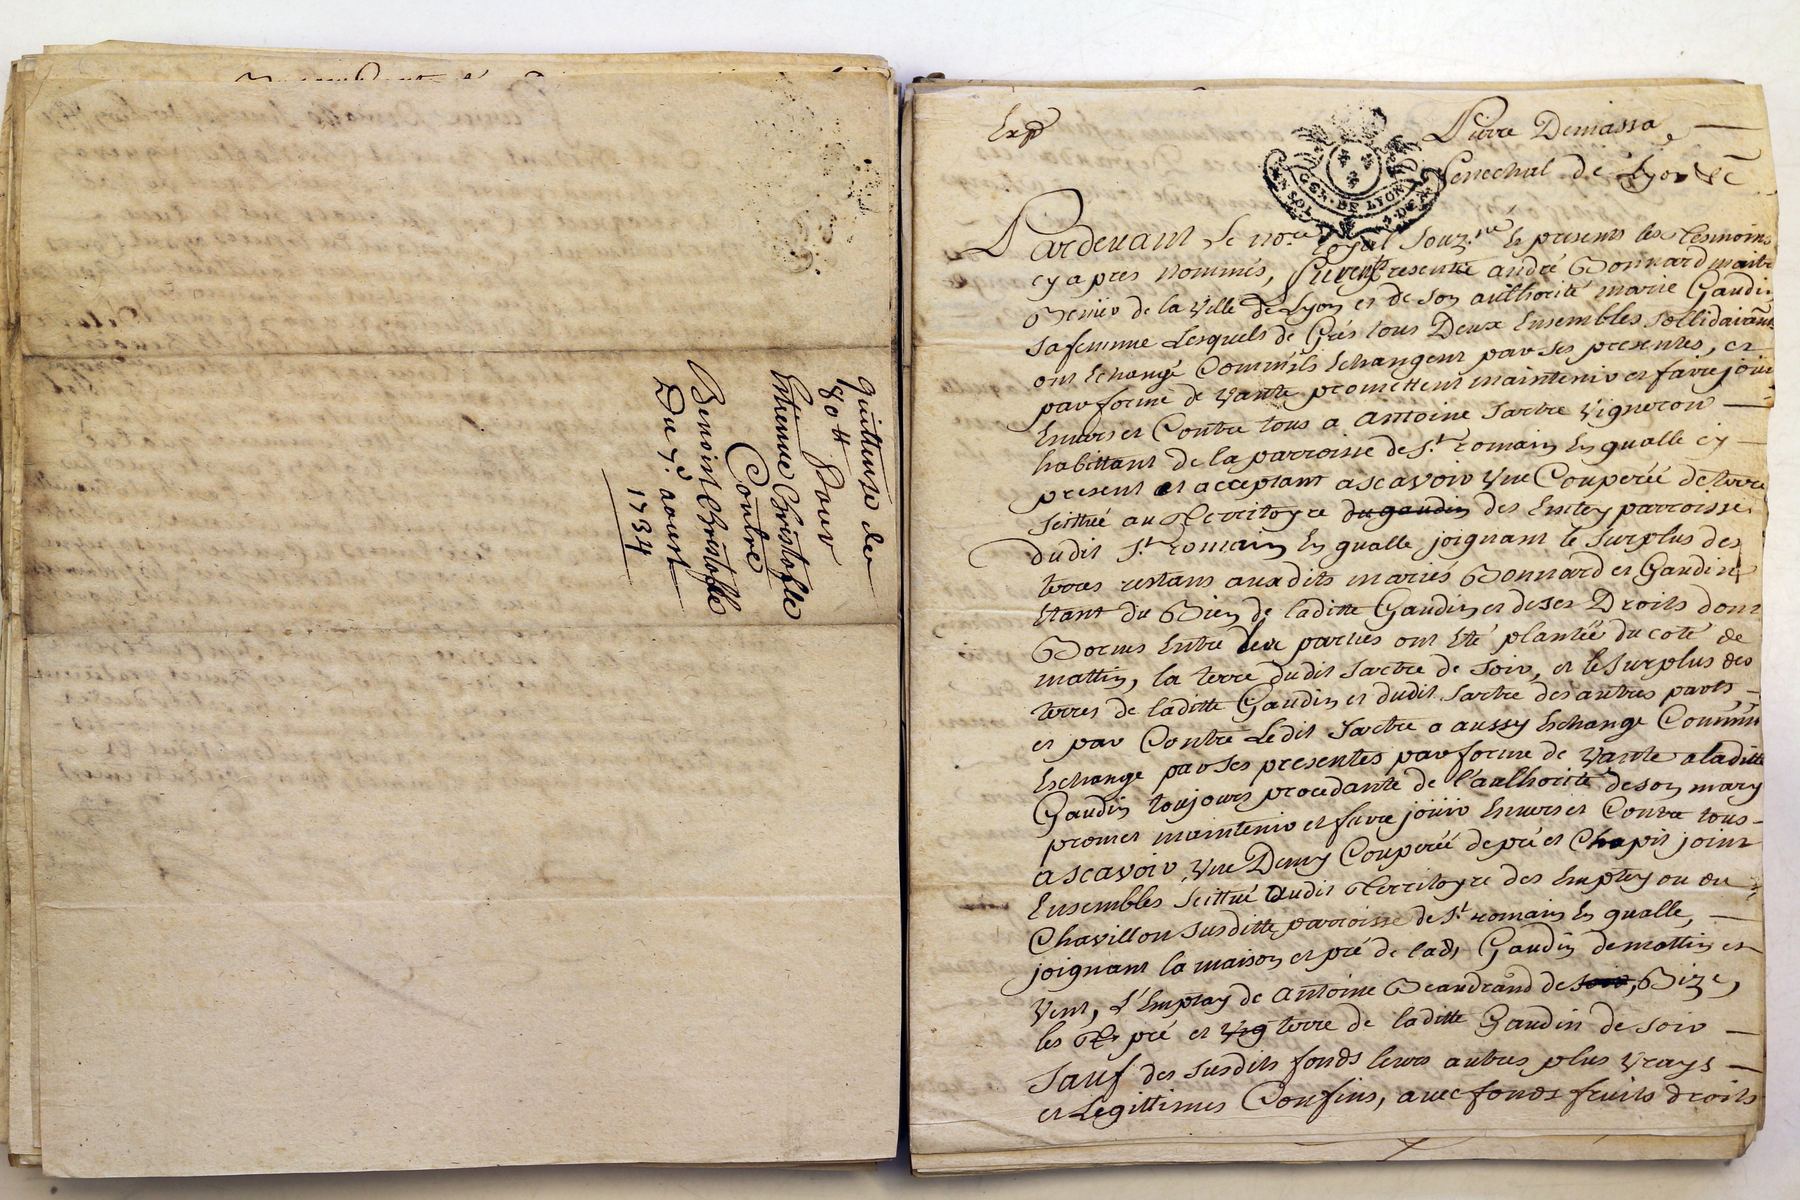 quittence de
80 ₶ Pour
Ettienne Christofle
Contre
Benoist Christofle
Du 7e aoust
1734
Exp
Pierre Demassa
Senechal de Lyon &c
GEN. DE LYON
Pardevant Le no.re royal Souz.né & presents les tesmoins
cy apres nommés, furent presents andré Bonnard maitre
de la Ville de Lyon et de son authorité marie Gaudin
sa femme Lesquels de Grés tous Deux Ensembles sollidairemt
ont Echangé Comm'ils Echangent par ses presentes, et
par forme de Vante promettent maintenir et faire jouir
Envers et Contre tous a Antoine Sartre Vigneron
habittant de la parroisse de St romain En qualle cy
present et acceptant ascavoir Une Couperéé de terre
scittué au Territoyre du gaudin des Emtey parroisse
dudit St romain En qualle joignant le surplus des
terres restans auxdits mariés Bonnard et Gaudin
Etant du Bien de laditte Gaudin et de ses Droits dont
Bornes Entre les parties ont Eté plantéé du coté de
mattin, la terre dudit Sartre de soir, et le surplus des
terres de laditte Gaudin et dudit Sartre des autres parts,
et par Contre Ledit Sartre a aussy Echangé Comm'il
Echange par ses presentes par forme de Vante a laditte
Gaudin toujours procedante de l'authorité de son mary
promet maintenir et faire joüir Envers et Contre tous
ascavoir Une Demy Couperéé de pré et Chapit joint
Ensembles scittué audit Territoyre des Empley ou du
Chavillon susditte parroisse de St romain En qualle,
joignant la maison et pré de lad. Gaudin de mattin et
Vent, L'Emplay de Antoine Beaudrand de soir, Bize,
les pré et Vig terre de laditte Gaudin de soir
Sauf des susdits fonds leurs autres plus Vrays
et Legittimes Confins, avec fonds fruits droits